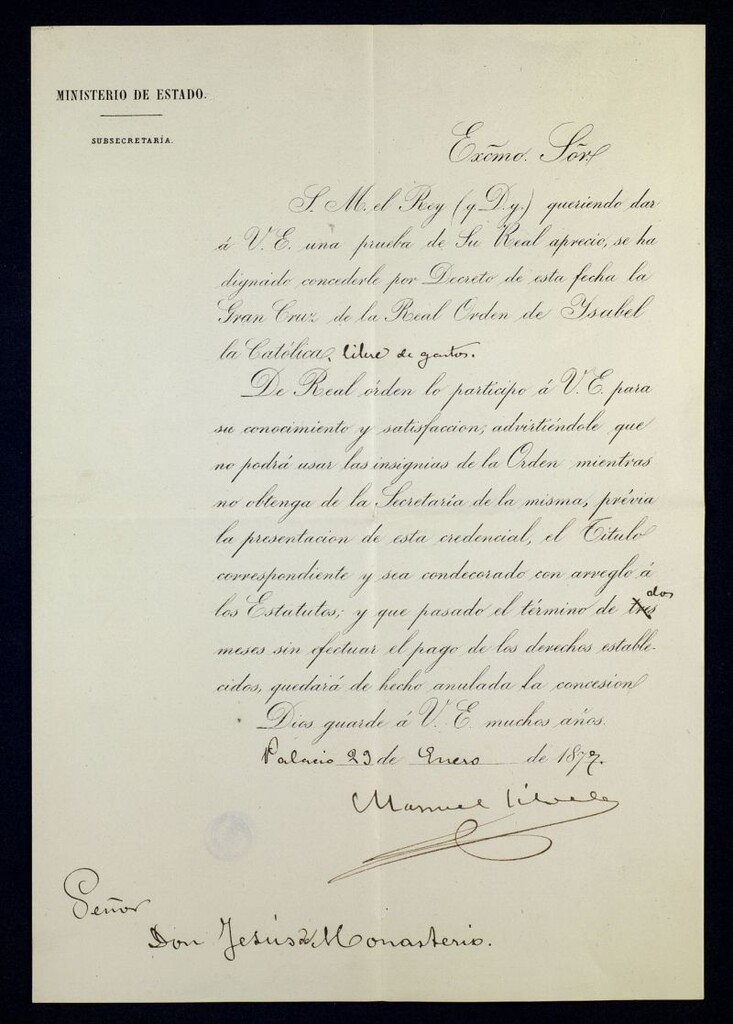 MINISTERIO DE ESTADO.
SUBSECRETARÍA.
Excmo. Sór
S. M. el Rey (q. D. g.) queriendo dar
á V. E. una prueba de Su Real aprecio, se ha
dignado concederle por Decreto de esta fecha la
Gran Cruz de la Real Orden de Isabel
la Católica, libre de gastos.
De Real órden lo participo á V. E. para
su conocimiento y satisfaccion; advirtiéndole que
no podrá usar las insignias de la Orden mientras
no obtenga de la Secretaría de la misma, prévia
la presentacion de esta credencial, el Título
correspondiente y sea condecorado con arreglo á
los Estatutos; y que pasado el término de tres dos
meses sin efectuar el pago de los derechos estable-
cidos, quedará de hecho anulada la concesion
Dios guarde á V. E. muchos años.
Palacio 23 de Enero de 1877.
Manuel Silvela
Señor
Don Jesús de Monasterio.